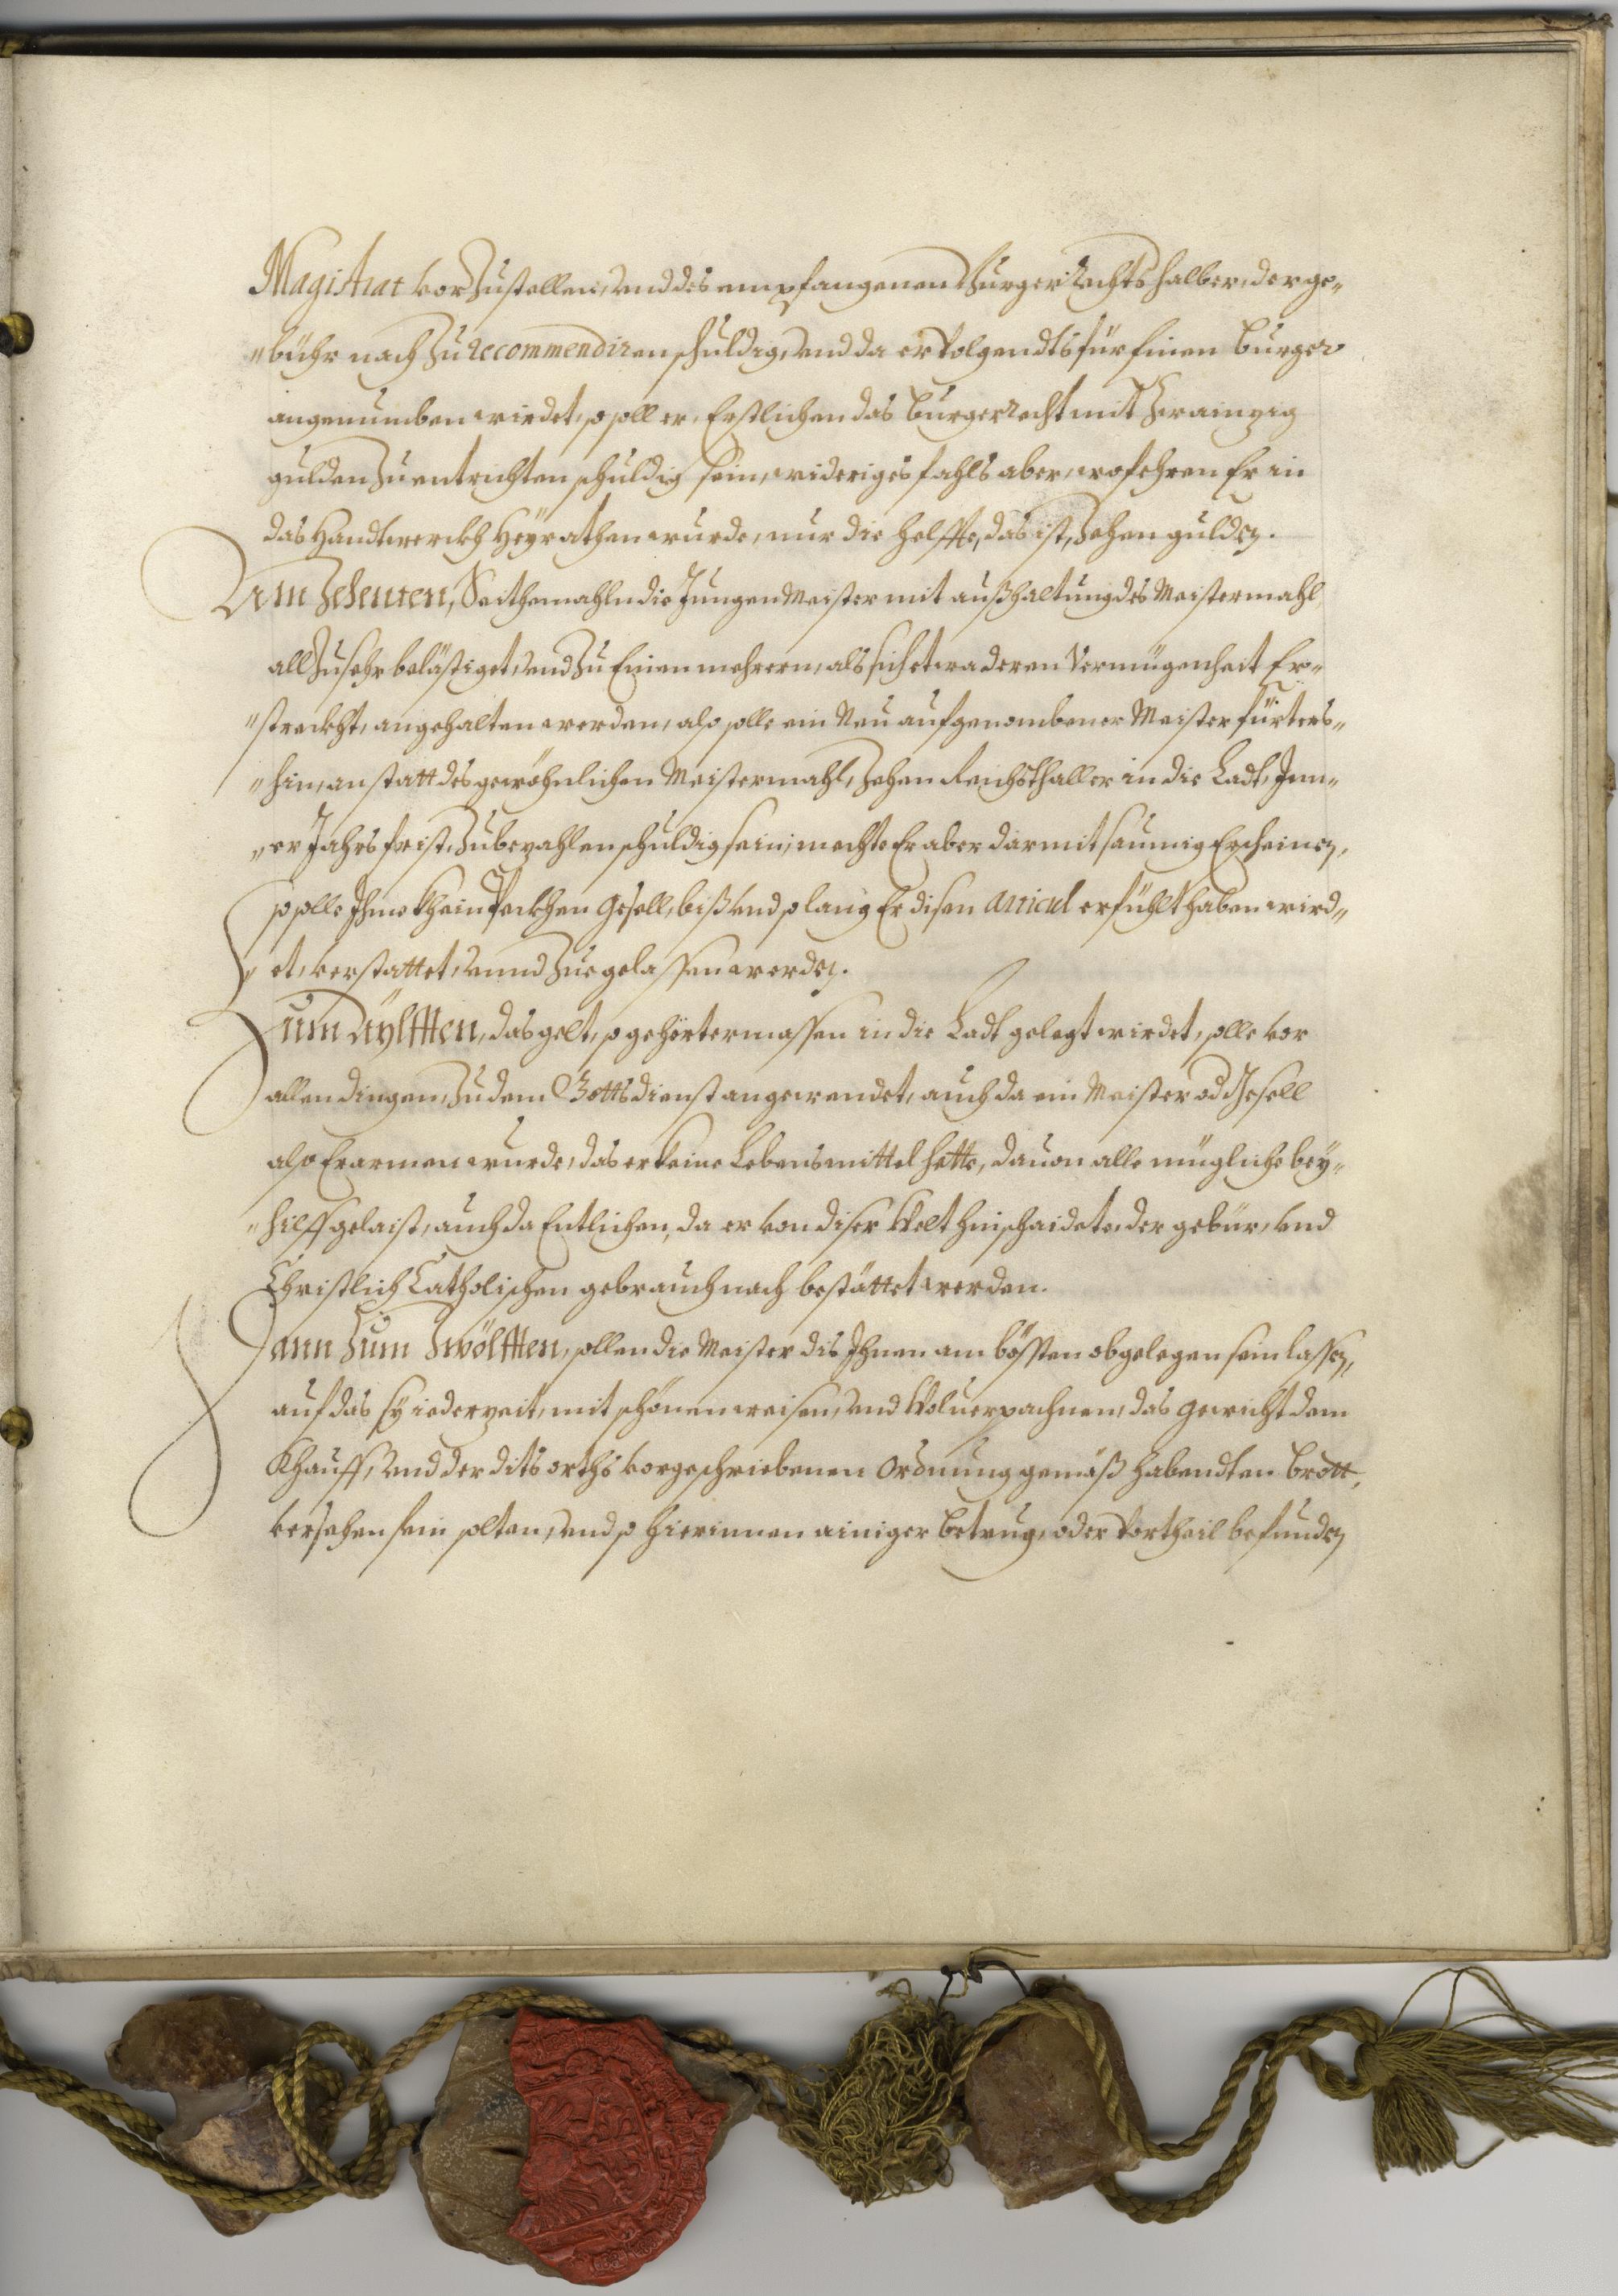 Magistrat vorzustellen, vnd des empfangenen Burger Rechts halber, der ge„
„bühr nach zu recommendiren schuldig, vnd da er volgendts für einen burger
angenumben wirdet, so soll er, Erstlichen das burgerrecht mit Zwainzig
gulden zu entrichten schuldig sein, wideriges fahls aber, wofehren Er in
das Handtwerckh Heyrathen wurde, nur die helffte, das ist, Zehen gulden.
Am Zehenten, Seithemahln die Jungen Meister mit außhaltung des Meistermahl
all zusehr belästiget, vnd zu Einen mehrern, als sich etwa deren Vermügenheit Er„
„streckht, angehalten werden, also solle ein Neu aufgenombener Meister fürters„
„hin, an statt des gewöhnlichen Meistermahl, Zehen Reichsthaller in die Ladt, Inn„
„er Jahrs frist, zubezahlen schuldig sein, mechte Er aber darmit saumig Erscheinen,
so solle Ihme khein Peckhen Gesell, biß vnd so lang Er disen Articul erfühlt haben wird„
et, verstattet, vnnd zuegelassen werden.
Zum Aylfften, das gelt, so gehörtermassen in die Ladt gelegt wirdet, solle vor
allen dingen, zu dem Gottsdienst angewendet, auch da ein Meister od Gesell
also Erarmen wurde, das er keine Lebensmittel hette, dauon alle mügliche bey„
„hilff gelaist, auch da Entlichen, da er von diser Welt hinschaidete, der gebür, vnd
Christlich Catholischen gebrauch nach bestättet werden.
Dann Zum Zwölfften, sollen die Meister dis Ihnen am bössten obgelegen sein lassen,
auf das sy iederzeit, mit schönen weisen, vnd Woluerpachnen, das gewicht dem
Khauff, vnd der dits orths vorgeschriebenen Ordnung gemäß habendten brott,
versehen sein solten, vnd so hierinnen ainiger betrug, oder Vortheil befunden